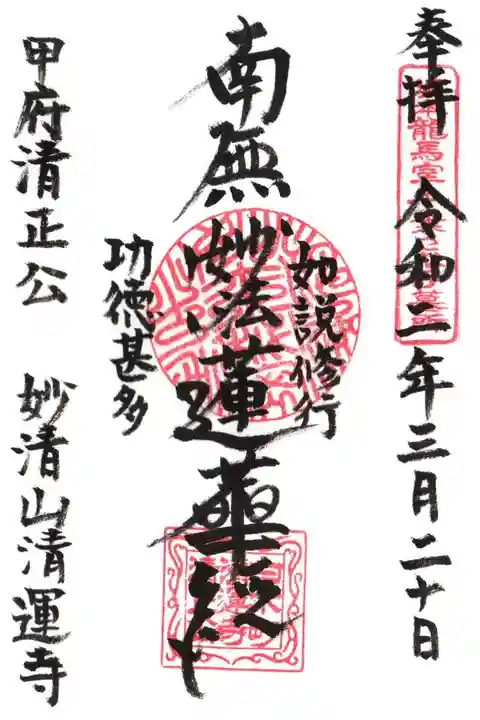 奉拝 令和二年三月二十日
如説修行
南無妙法蓮華経
功徳甚多
甲府清正公 妙清山清運寺